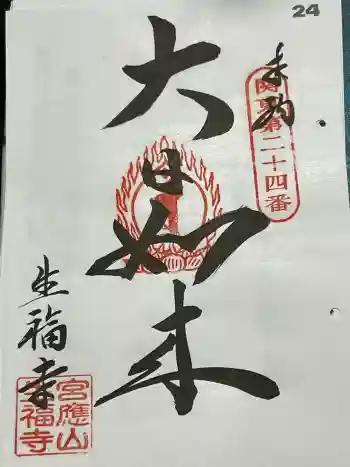 24
奉拝
関東第二十四番
大日如来
生福寺
宮應山
福寺